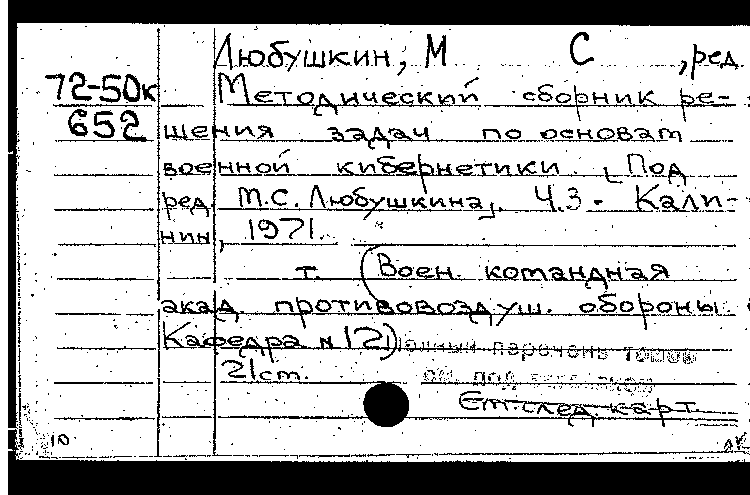 Любушкин, М С , ред
72-50к Методический сборник ре-
652 шения задач по основам
военной кибернетики. Под
ред. М.С. Любушкина, Ч.3. - Кали-
нин, 1971.
т. (Воен. командная
акад противовоздуш. обороны
Кафедра № 12) Полный перечень томов
21 cm. см. под
См. след. карт.
10 лк